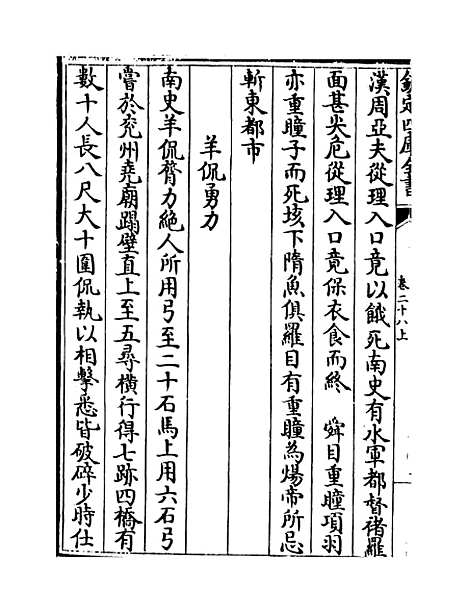 欽定四庫全書
卷二十八上
漢周亞夫從理入口竟以餓死南史有水軍都督褚羅
面甚尖危從理入口竟保衣食而終 舜目重瞳項羽
亦重瞳子而死垓下隋魚俱羅目有重瞳為煬帝所忌
斬東都市
羊侃勇力
南史羊侃膂力絶人所用弓至二十石馬上用六石弓
嘗於兖州堯廟蹋壁直上至五尋橫行得七跡四橋有
數十人長八尺大十圍侃執以相擊悉皆破碎少時仕